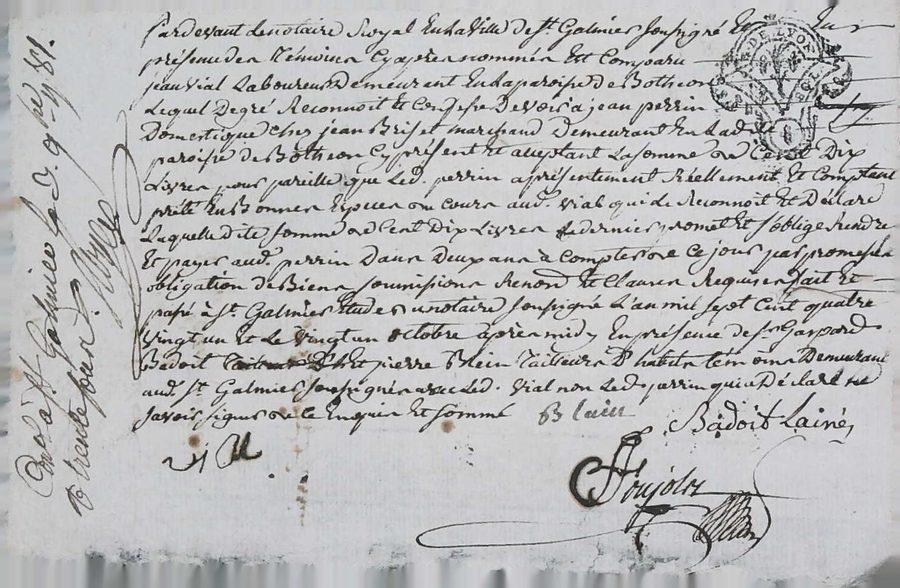 Pardevant Le notaire Royal En La Ville de St. Galmier soussigné Et En
présence des Témoins Cy après nommés Est Comparu
jean Vial Laboureur Demeurant En La paroisse de Bothéon
Lequel De gré Reconnoit et Confesse Devoir a jean perrin
Domestique chez jean Brisset marchand Demeurant En Lad.
paroisse de Bothéon Cy présent Et acceptant La somme de Cent Dix
Livres pour pareille que Led. perrin a présentement Réellement Et Comptant
prêté En Bonnes Espèces au Cours aud. Vial qui Le Reconnoit Et Déclare
Laquelle dite somme de Cent Dix Livres promet Et s'oblige Rendre
Et payer aud. perrin Dans Deux ans à Compter de Ce jour par promesse
obligation de Biens soumissions Renon. Et Clauses Requises fait Et
passé à St. Galmier Etude du notaire soussigné L'an mil sept Cent quatre
Vingt un Et Le Vingt un octobre après midy En présence de sr. Gaspard
Badoit Et pierre Blein Tailleurs D'habits témoins Demeurant
aud. St. Galmier soussignés avec Led. Vial non Led. perrin qui a Déclaré ne
savoir signer de Ce Enquis Et sommé
Blain
Badoit Lainé
Poujolas
GEN. DE LYON
Con.lé à St Galmier Le d. 9bre 1781.
R treize sous